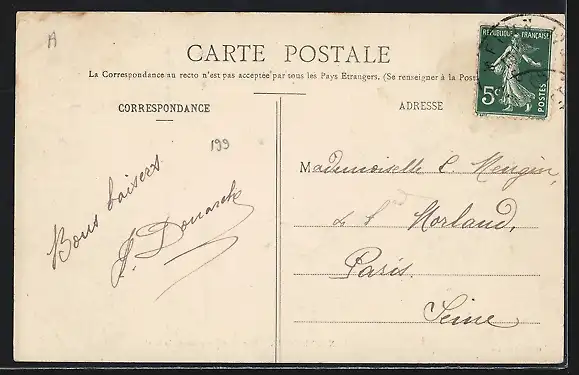 A
CARTE POSTALE
La Correspondance au recto n'est pas acceptée par tous les Pays Etrangers. (Se renseigner à la Post
CORRESPONDANCE
ADRESSE
REPUBLIQUE FRANÇAISE
5c
POSTES
199
Bons baisers
Mademoiselle C. Mengin,
Morland,
Paris.
Seine